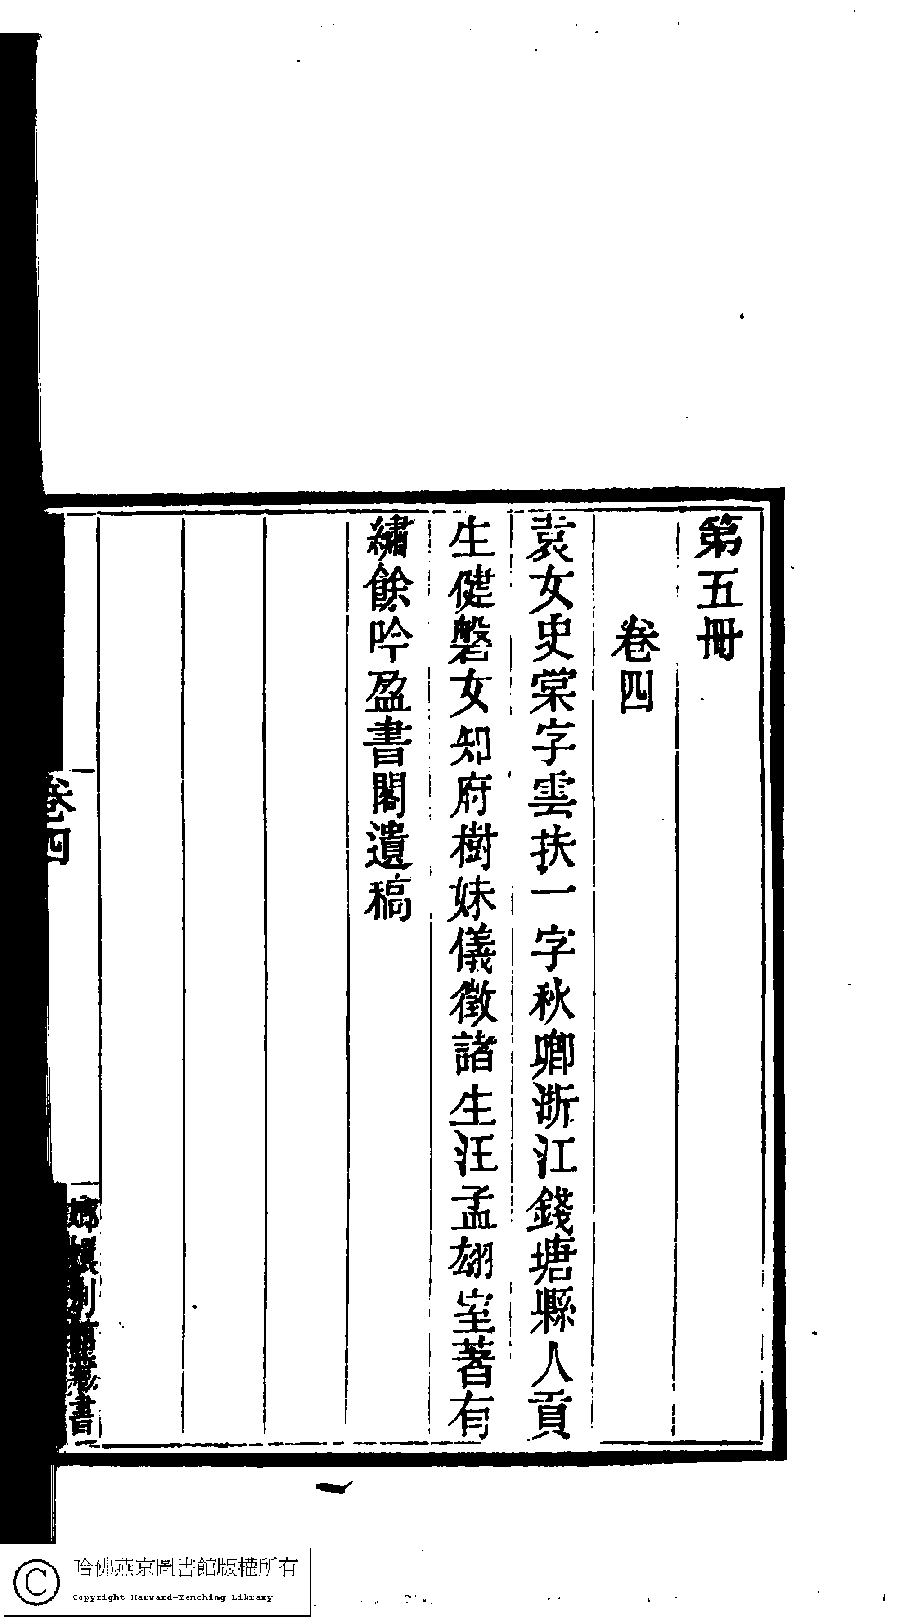 第五冊
卷四
袁女史棠字雲扶一字秋卿浙江錢塘縣人貢
生健磐女知府樹妹儀徵諸生汪孟翊室著有
繡餘吟盈書閣遺稿
卷四
哈佛燕京圖書館版權所有
Copyright Harvard-Yenching Library